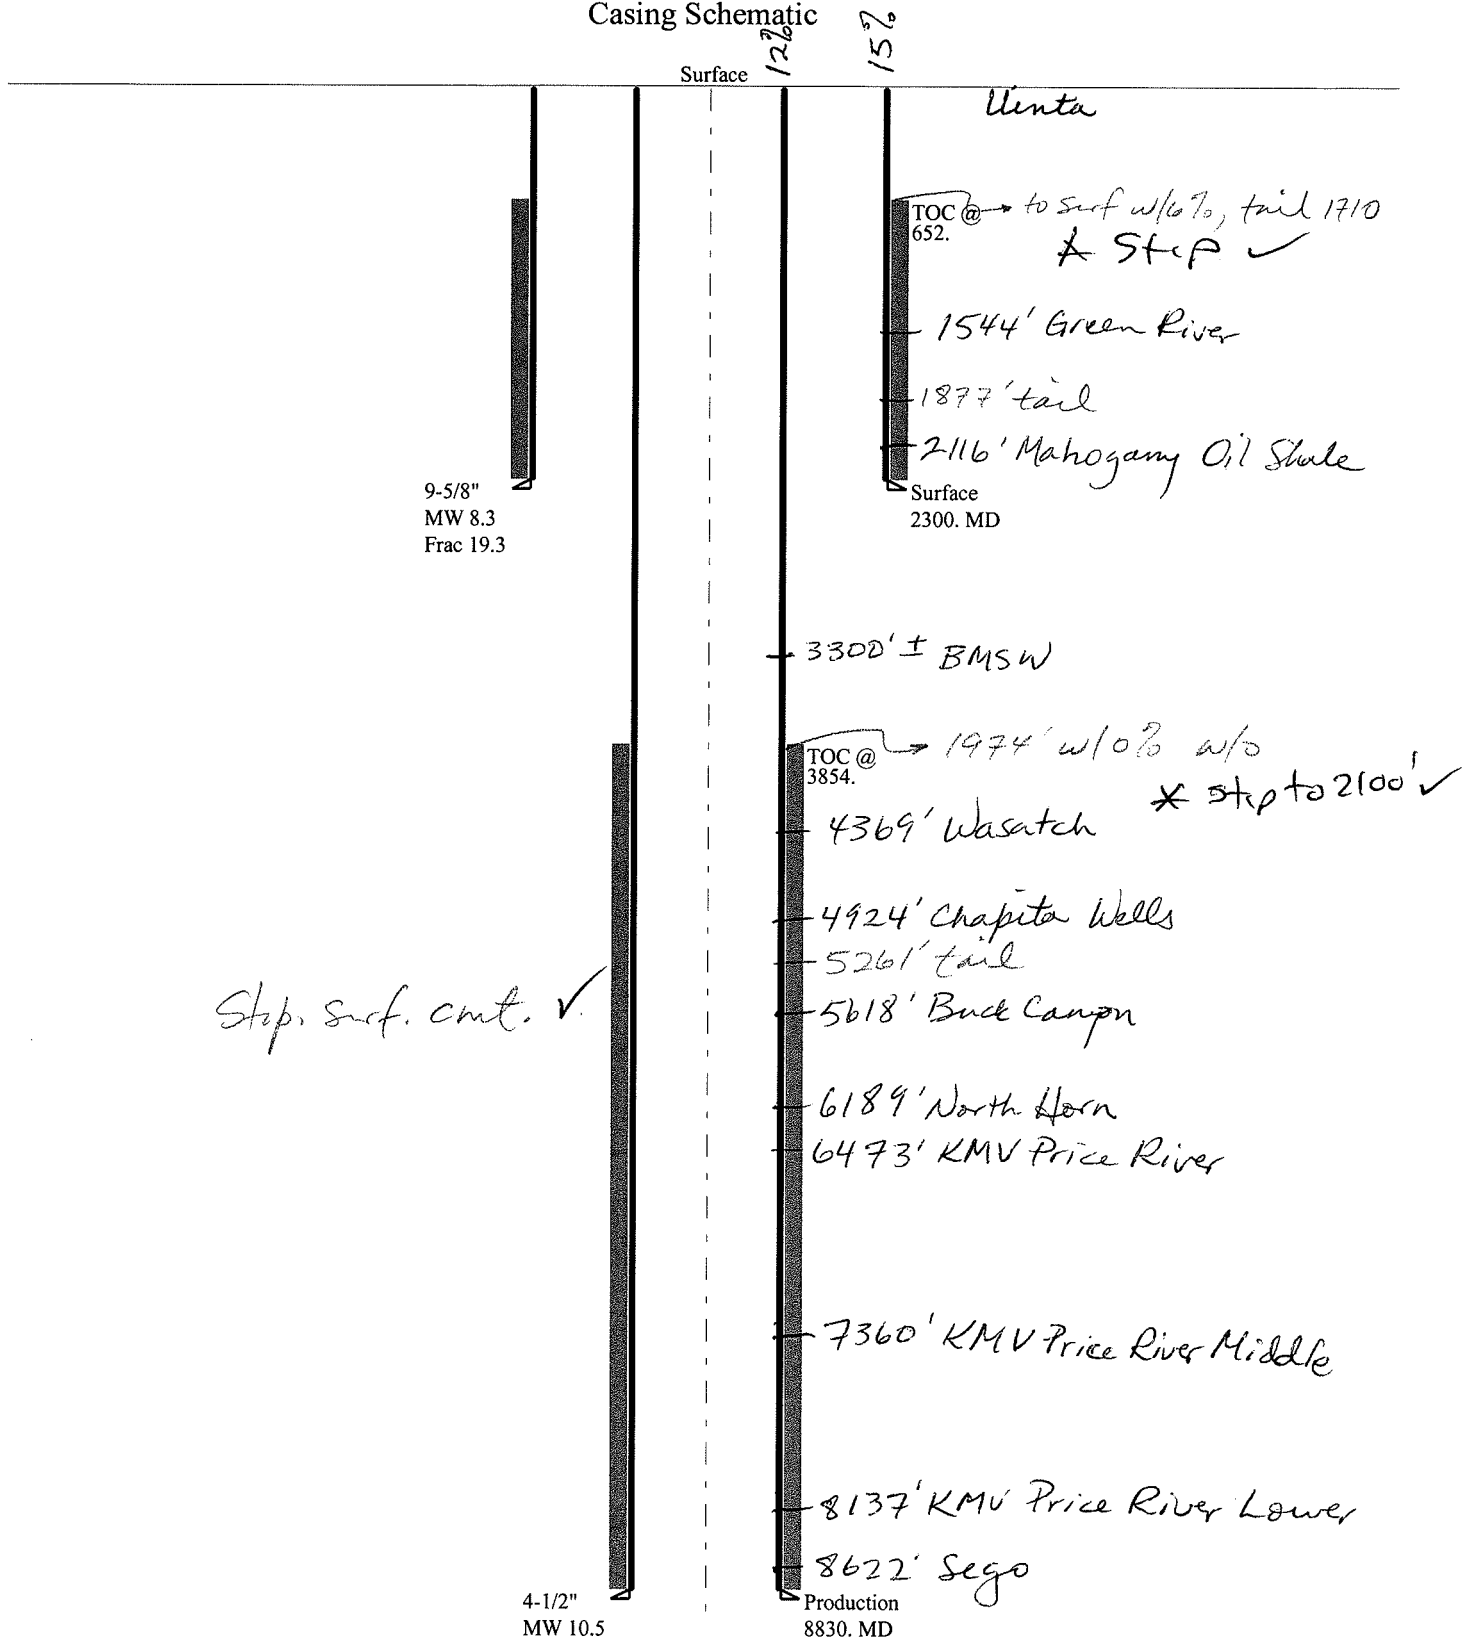 Casing Schematic
12%
15%
Surface
Uinta
TOC @ → to surf w/6%, tail 1710
652.
* Stip ✓
1544' Green River
1877' tail
2116' Mahogany Oil Shale
9-5/8"
MW 8.3
Frac 19.3
Surface
2300. MD
3300' ± BMSW
TOC @ → 1974' w/0% w/o
3854.
* stip to 2100' ✓
4369' Wasatch
4924' Chapita Wells
5261' tail
Stip. surf. cmt. ✓
5618' Buck Canyon
6189' North Horn
6473' KMV Price River
7360' KMV Price River Middle
8137' KMV Price River Lower
8622' Sego
4-1/2"
MW 10.5
Production
8830. MD